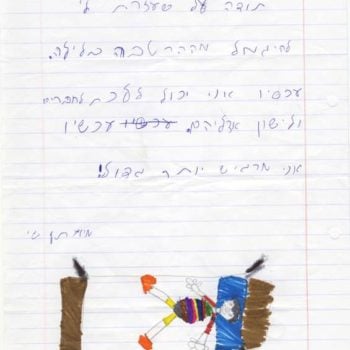 תודה על שעזרת לי
להיגמל מההרטבה בלילה.
עכשיו אני יכול ללכת לחברים
ולישון אצליהם. עכשיו עכשיו
אני מרגיש יותר גדול!